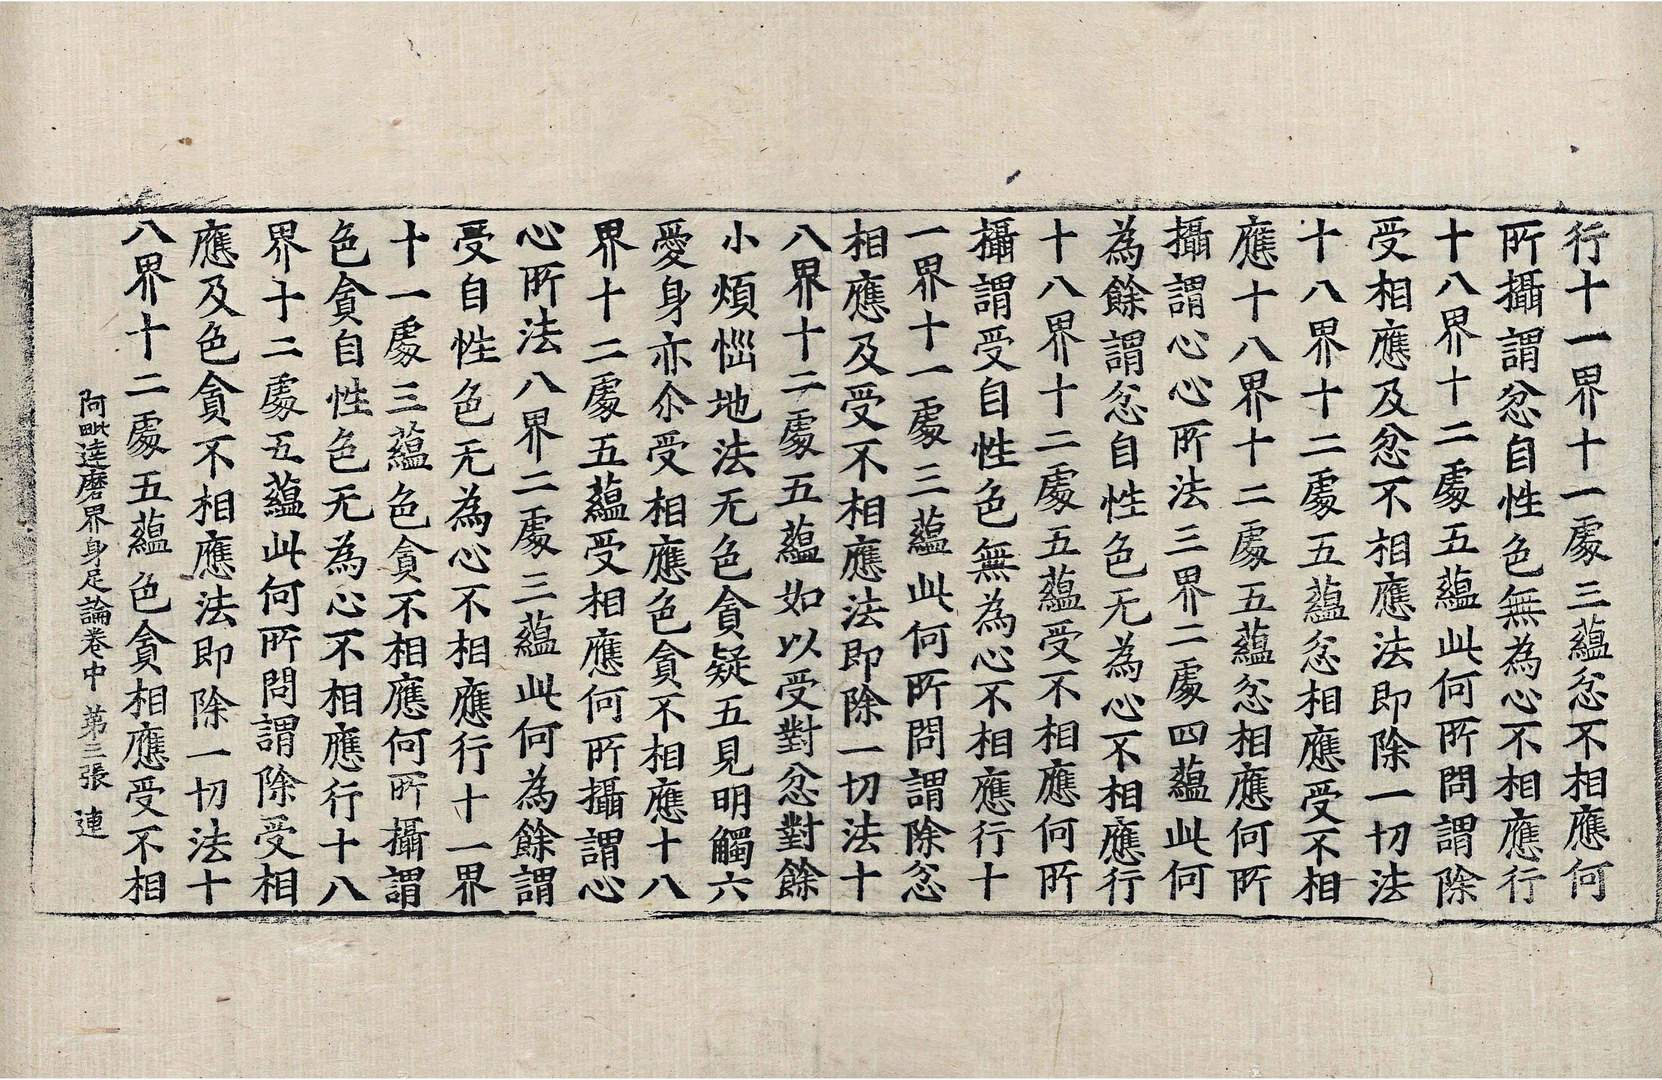 行十一界十一處三蘊忿不相應何
所攝謂忿自性色無為心不相應行
十八界十二處五蘊此何所問謂除
受相應及忿不相應法即除一切法
十八界十二處五蘊忿相應受不相
應十八界十二處五蘊忿相應何所
攝謂心心所法三界二處四蘊此何
為餘謂忿自性色无為心不相應行
十八界十二處五蘊受不相應何所
攝謂受自性色無為心不相應行十
一界十一處三蘊此何所問謂除忿
相應及受不相應法即除一切法十
八界十二處五蘊如以受對忿對餘
小煩惱地法无色貪疑五見明觸六
愛身亦尒受相應色貪不相應十八
界十二處五蘊受相應何所攝謂心
心所法八界二處三蘊此何為餘謂
受自性色无為心不相應行十一界
十一處三蘊色貪不相應何所攝謂
色貪自性色无為心不相應行十八
界十二處五蘊此何所問謂除受相
應及色貪不相應法即除一切法十
八界十二處五蘊色貪相應受不相
阿毗達磨界身足論卷中 第三張 連